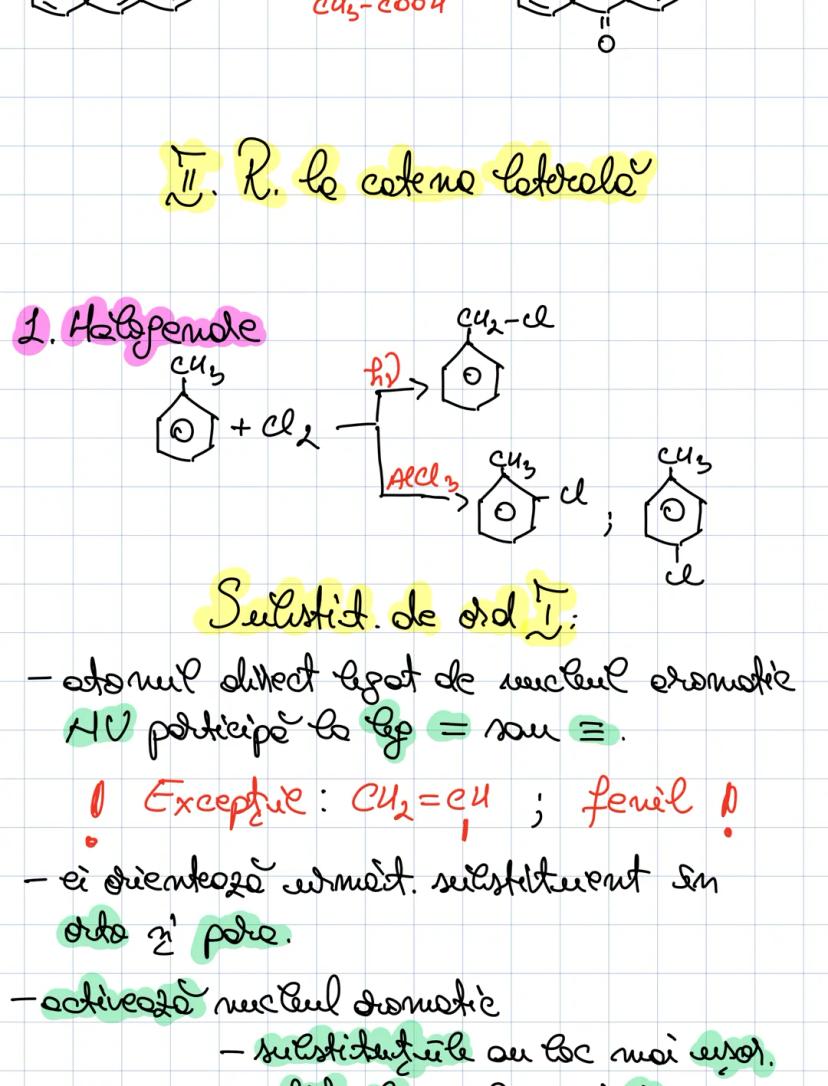 CH3-COOH
O
II. R. la catena laterală
1. Halogenare
CH3 + Cl2
hν
CH2-Cl
AlCl3
CH3 Cl ; CH3 Cl
Substit. de ord I:
- atomul direct legat de nucleul aromatic
NU participă la leg = sau ≡.
! Excepție: CH2=CH ; fenil !
- ei orientează următ. substituent în
orto și para.
- activează nucleul aromatic
- substituțiile au loc mai ușor.